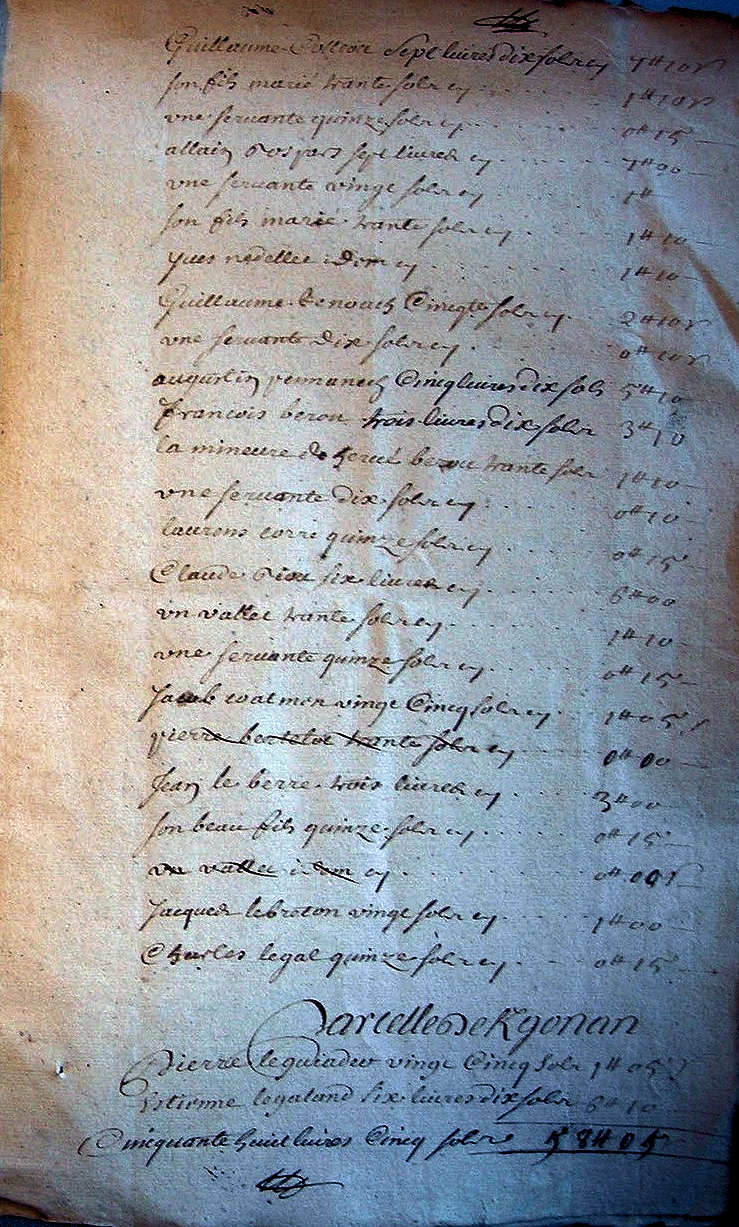 Guillaume sept liures dix sols cy 7# 10 s
son fils marié trante sols cy . . . . 1# 10 s
vne seruante quinze sols cy . . . . 0# 15
allain sept liures cy . . . 7# 00
vne seruante vingt sols cy . . . . 1#
son fils marié trante sols cy . . . 1# 10
yues nedellec idem cy . . . . 1# 10
Guillaume Cinqte sols cy . 2# 10 s
vne seruante dix sols cy . . . . 0# 10 s
augustin pennanech Cinq liures dix sols 5# 10
francois berou trois liures dix sols 3# 10
la mineure de herué berou trante sols 1# 10
vne seruante dix sols cy . . . . 0# 10
laurens corre quinze sols cy . . . . 0# 15
Claude riou six liures cy . . . . 6# 00
vn vallet trante sols cy . . . . 1# 10
vne seruante quinze sols cy . . . . 0# 15
Jacob coatmen vingt Cinq sols cy . . 1# 05
pierre bertelot trante sols cy . . . . 0# 00
Jean le berre trois liures cy . . . . 3# 00
son beau fils quinze sols cy . . . . 0# 15
vn vallet idem cy . . . . 0# 00
Jacques lebreton vingt sols cy . . . . 1# 00
Charles legal quinze sols cy . . . 0# 15
Parcelle De Kgonan
Pierre leguiader vingt Cinq sols 1# 05
Estienne legaland six liures dix sols 6# 10
Cinquante huict liures Cinq sols 58# 05